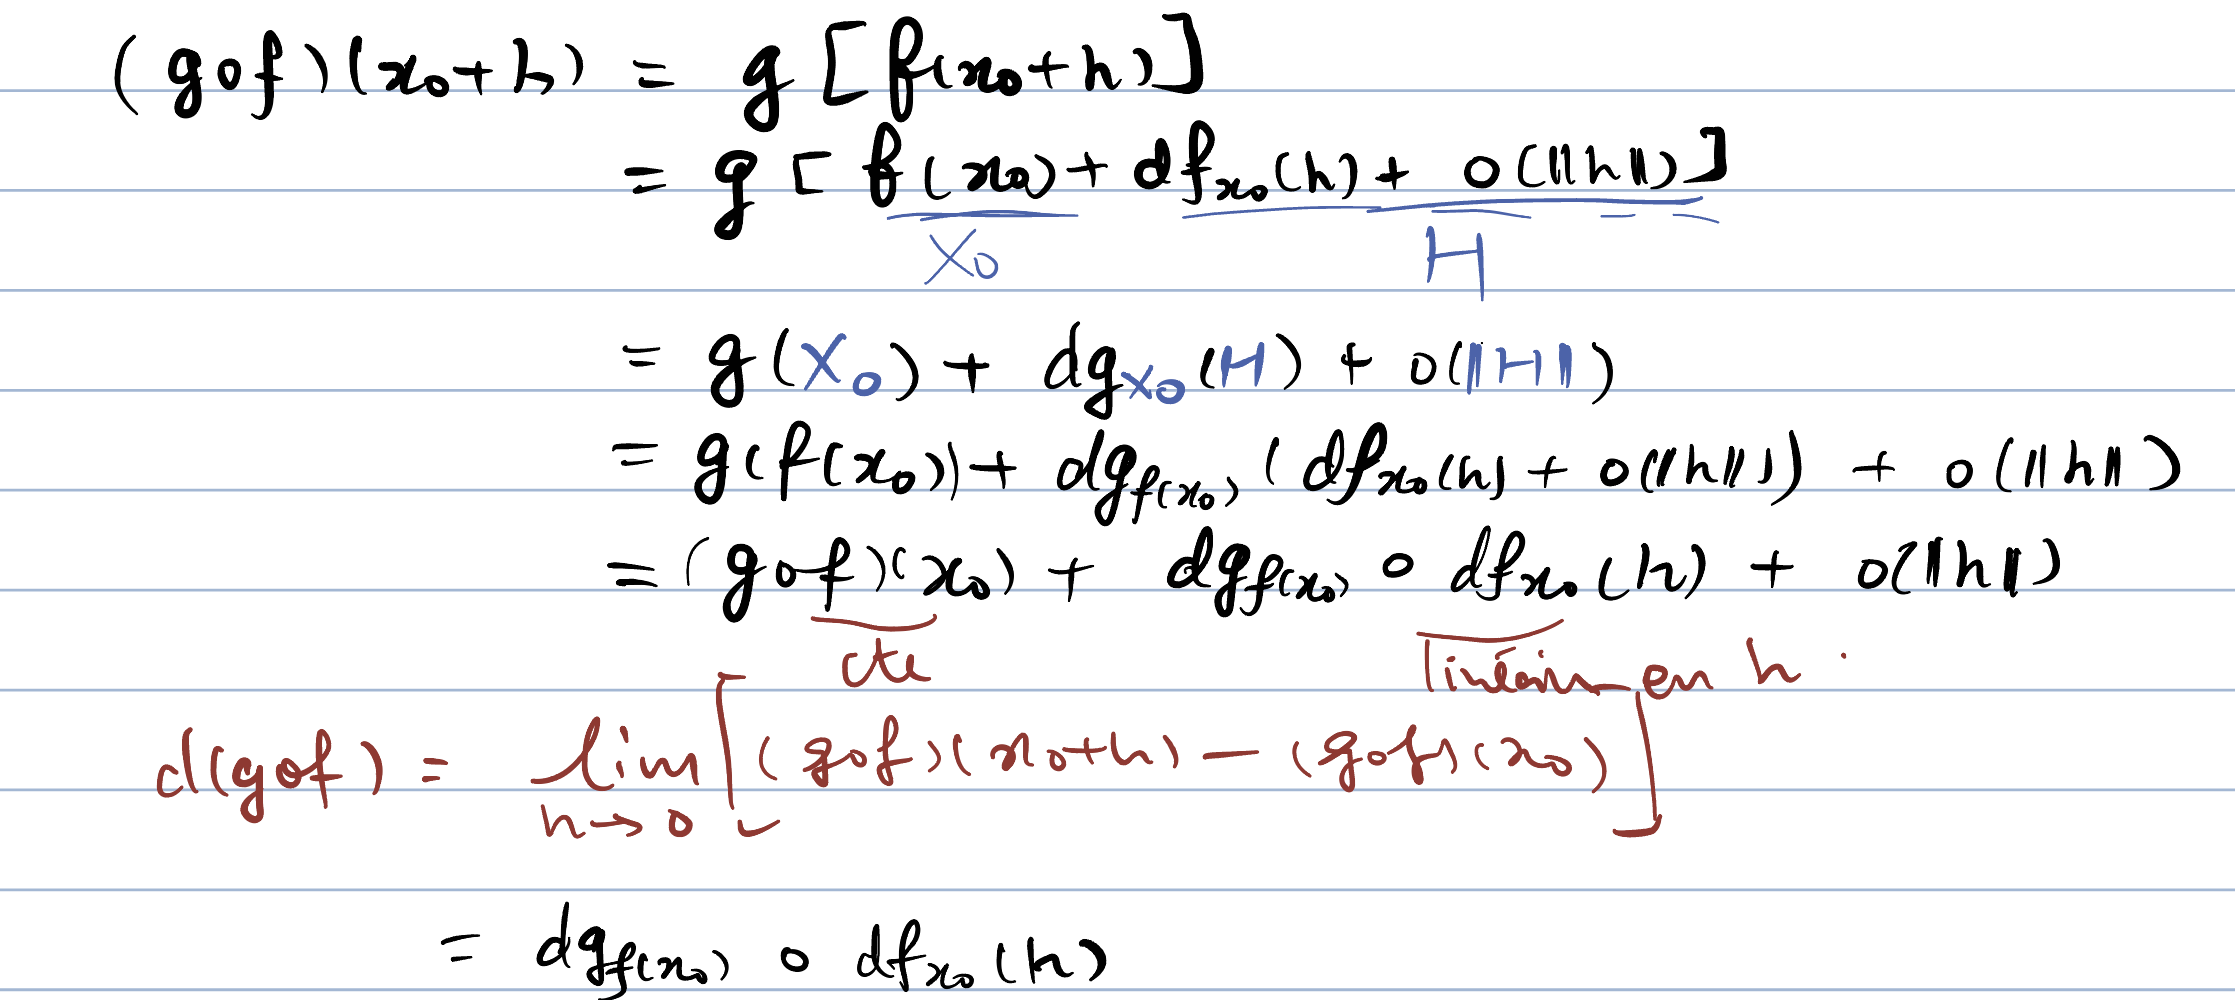 (g∘f)(x₀+h) = g[f(x₀+h)]
= g[f(x₀) + df_{x₀}(h) + o(‖h‖)]
X₀ H
= g(X₀) + dg_{X₀}(H) + o(‖H‖)
= g(f(x₀)) + dg_{f(x₀)}(df_{x₀}(h) + o(‖h‖)) + o(‖h‖)
= (g∘f)(x₀) + dg_{f(x₀)} ∘ df_{x₀}(h) + o(‖h‖)
cte linéaire en h.
d(g∘f) = lim_{h→0} [(g∘f)(x₀+h) − (g∘f)(x₀)]
= dg_{f(x₀)} ∘ df_{x₀}(h)